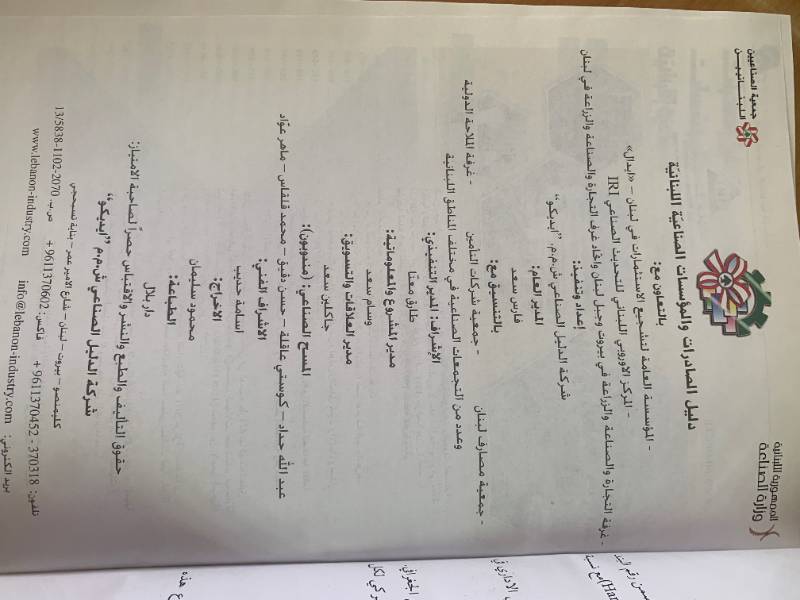 الجمهورية اللبنانية
وزارة الصناعة
جمعية الصناعيين
اللبنانيين
دليل الصادرات والمؤسسات الصناعيّة اللبنانيّة
بالتعاون مع:
- المؤسسة العامة لتشجيع الاستثمارات في لبنان – «ايدال»
- المركز الاوروبي اللبناني للتحديث الصناعي IRI
- غرفة التجارة والصناعة والزراعة في بيروت وجبل لبنان واتحاد غرف التجارة والصناعة والزراعة في لبنان
إعداد وتنفيذ:
شركة الدليل الصناعي ش.م.م. "ايديكو"
المدير العام:
فارس سعد
بالتنسيق مع:
- جمعية مصارف لبنان - جمعية شركات التأمين - غرفة الملاحة الدولية
وعدد من التجمعات الصناعية في مختلف المناطق اللبنانية
الإشراف: المدير التنفيذي:
طارق معنا
مدير المشروع والمعلوماتية:
وسام سعد
مدير العلاقات والتسويق:
جاكلين سعد
المسح الصناعي: (مندوبون):
عبد الله حداد – كوستي عاقلة – حسن دقيق – محمد قلقاس – ماهر عوّاد
الاشراف الفني:
اسامة حديب
الاخراج:
محمود سليمان
الطباعة:
دار بلال
حقوق التأليف والطبع والنشر والاقتباس حصراً لصاحبة الامتياز:
شركة الدليل الصناعي ش.م.م "ايديكو"
كليمنصو – بيروت – لبنان – شارع الامير عمر – بناية تسبحجي
تلفون: 370318 - 9611370452 + فاكس: 9611370602 + ص.ب. 2070-1102-13/5838
بريد الكتروني: info@lebanon-industry.com www.lebanon-industry.com